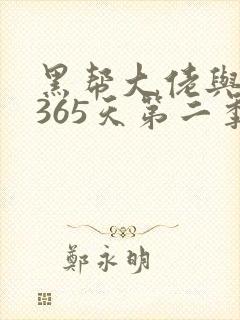 黑帮大佬與
365天第二季
鄭永明